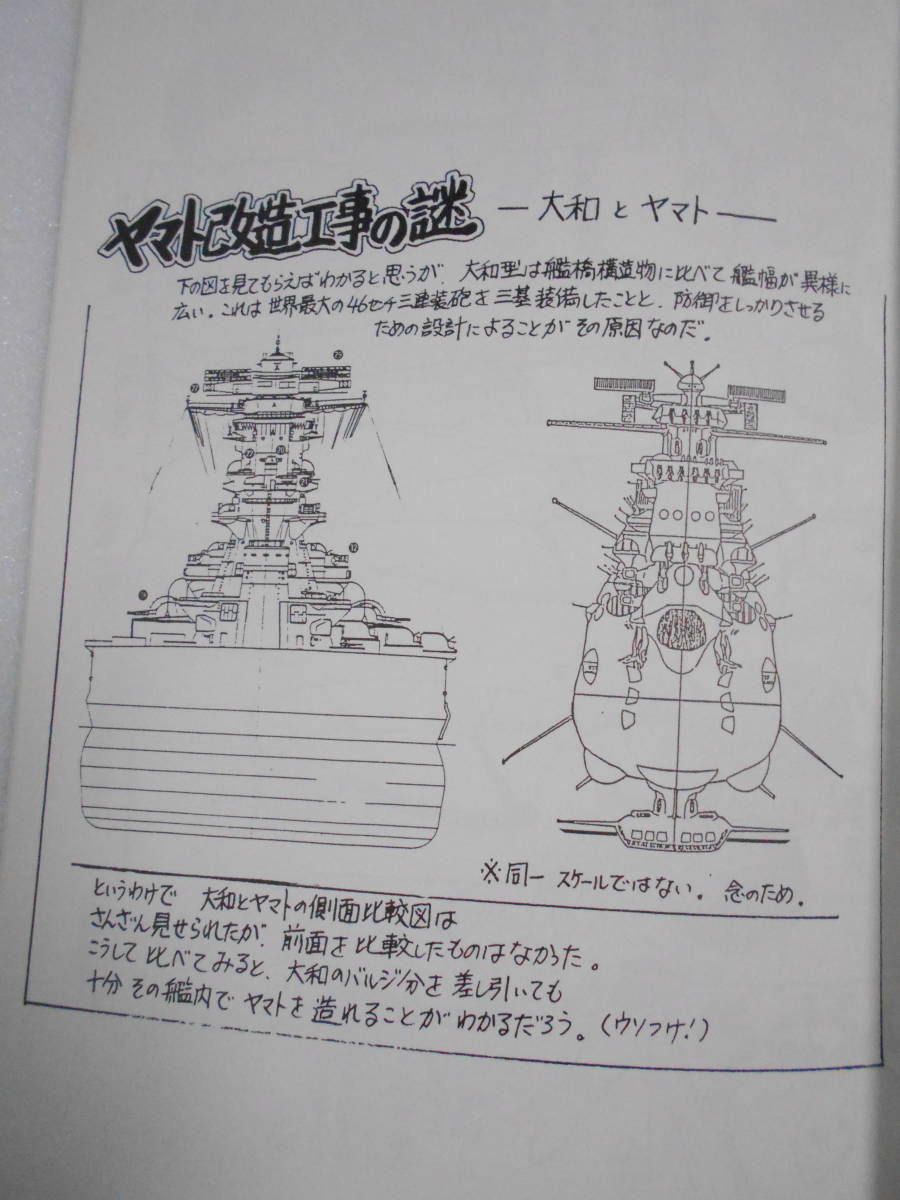 ヤマト改造工事の謎 ―大和とヤマト―
下の図を見てもらえばわかると思うが、大和型は艦橋構造物に比べて艦幅が異様に
広い。これは世界最大の46センチ三連装砲を三基装備したことと、防御をしっかりさせる
ための設計によることがその原因なのだ。
※同一スケールではない。念のため。
というわけで 大和とヤマトの側面比較図は
さんざん見せられたが、前面を比較したものはなかった。
こうして比べてみると、大和のバルジ分を差し引いても
十分その艦内でヤマトを造れることがわかるだろう。(ウソつけ!)